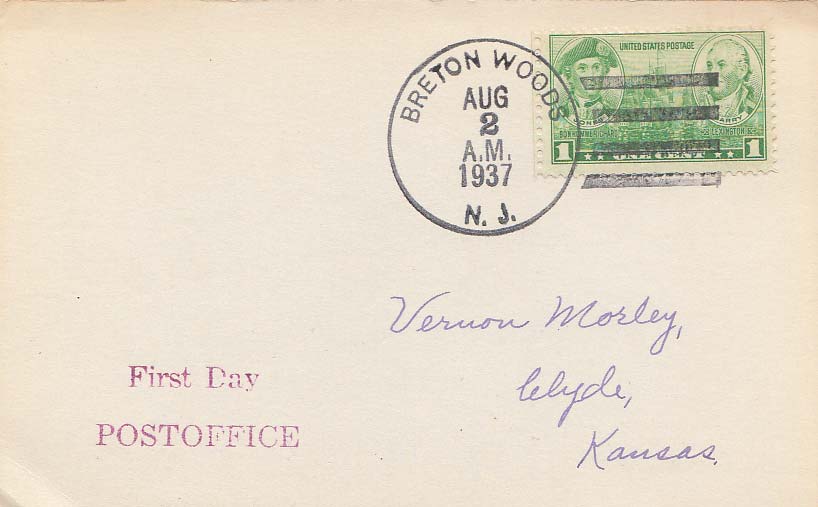 BRETON WOODS
AUG
2
A.M.
1937
N. J.
UNITED STATES POSTAGE
BONHOMME RICHARD
LEXINGTON
1 ONE CENT 1
Vernon Morley,
Clyde,
Kansas.
First Day
POSTOFFICE